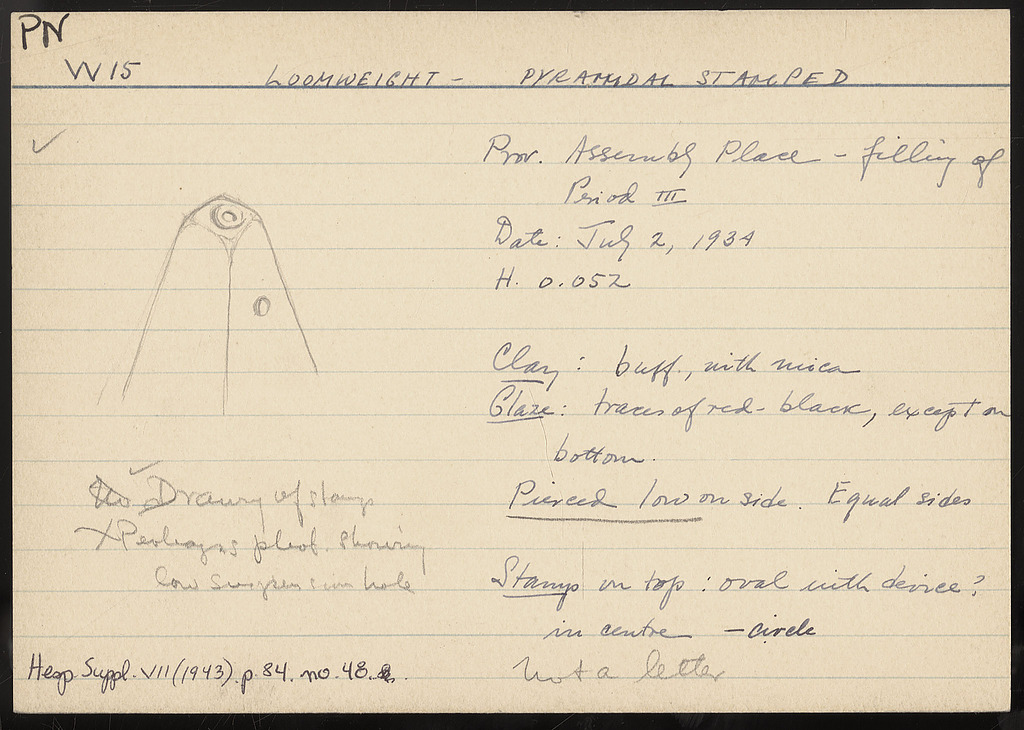 PN
W 15
LOOMWEIGHT - PYRAMIDAL STAMPED
Prov. Assembly Place - filling of
Period III
Date: July 2, 1934
H. 0.052
Clay: buff, with mica
Glaze: traces of red-black, except on
bottom.
Pierced low on side. Equal sides
Stamp on top: oval with device?
in centre - circle
Not a letter
No Drawing of stamp
X Perhaps phot. showing
low suspension hole
Hesp. Suppl. VII (1943). p. 84. no. 48.